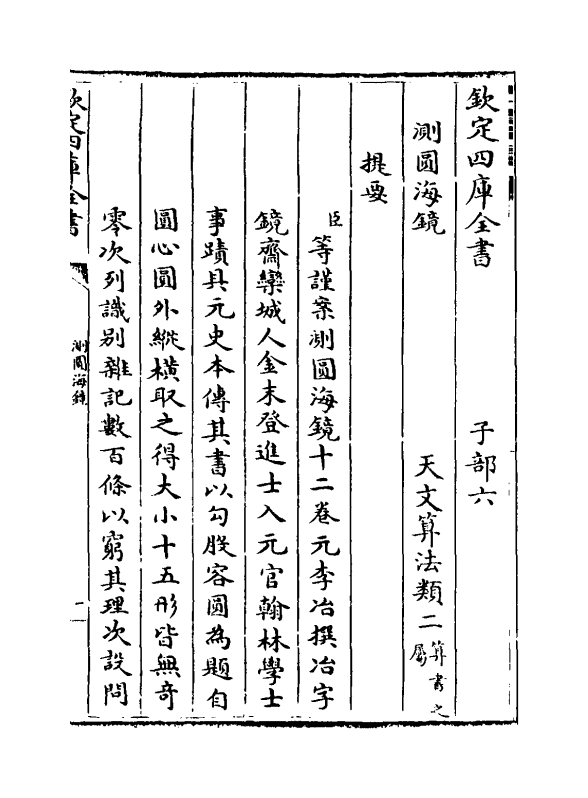 欽定四庫全書 子部六
測圓海鏡 天文算法類二 算書之屬
提要
臣等謹案測圓海鏡十二卷元李冶撰冶字
鏡齋欒城人金末登進士入元官翰林學士
事蹟具元史本傳其書以勾股容圓為題自
圓心圓外縱橫取之得大小十五形皆無奇
零次列識別雜記數百條以窮其理次設問
欽定四庫全書
測圓海鏡
一